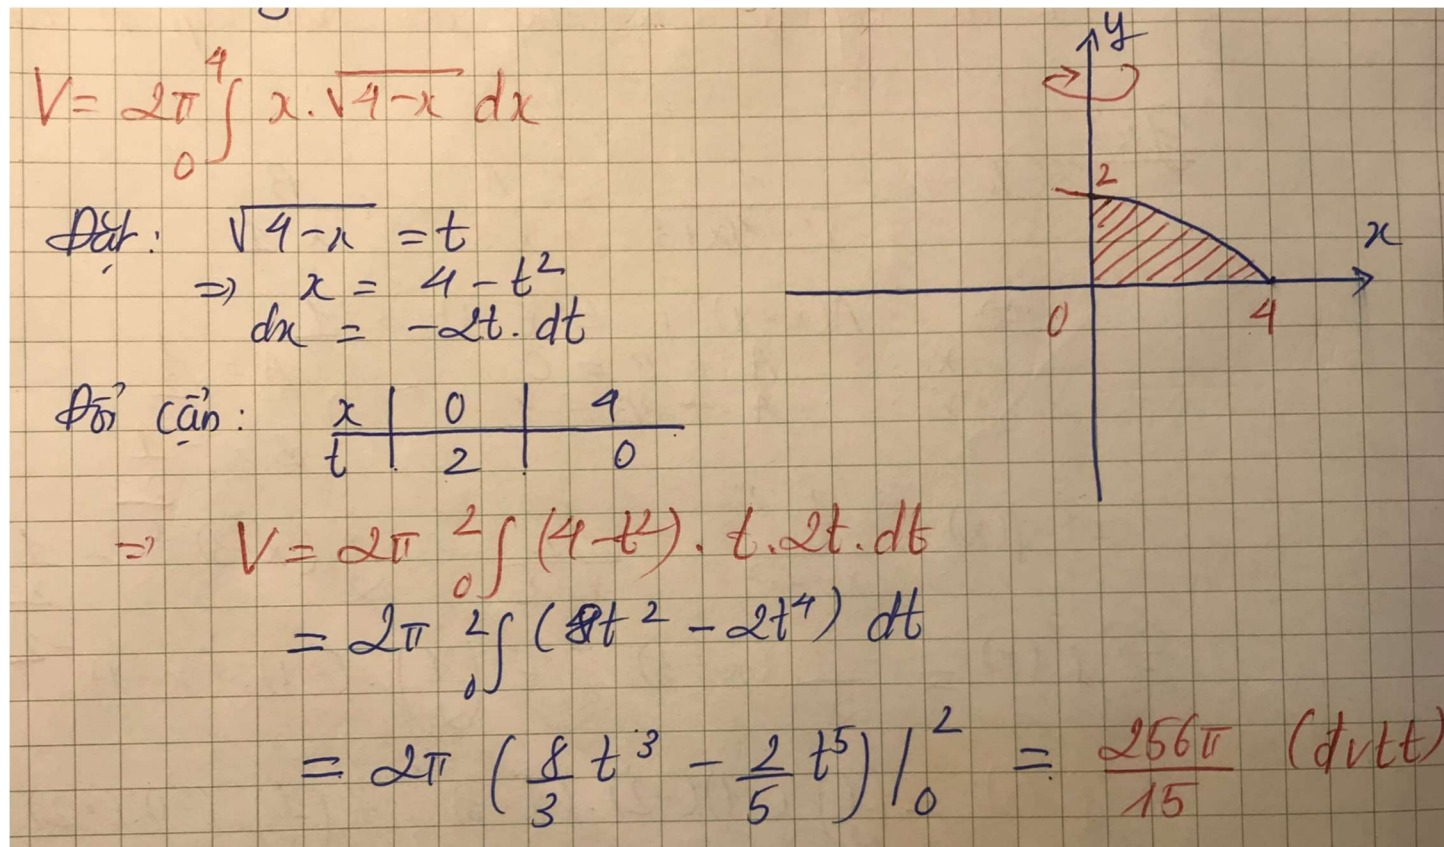 V = 2π ∫₀⁴ x.√(4-x) dx
Đặt: √(4-x) = t
⇒ x = 4 - t²
dx = -2t.dt
Đổi cận: x | 0 | 4
t | 2 | 0
⇒ V = 2π ∫₀² (4-t²). t.2t.dt
= 2π ∫₀² (8t² - 2t⁴) dt
= 2π (8/3 t³ - 2/5 t⁵) |₀² = 256π/15 (đvtt)
y
2
x
0 4